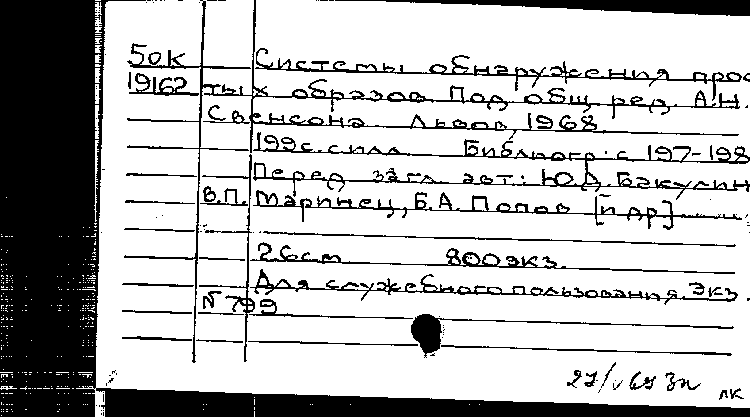 50К Системы обнаружения прос
19162 тых образов. Под общ. ред. А.Н.
Свенсона. Львов, 1968.
199с. с илл. Библиогр: с 197-198
Перед загл. авт.: Ю.Д. Бакулин
В.П. Маринец, Б.А. Попов [и др]
26см 800экз.
Для служебного пользования. Экз.
N 799
лк